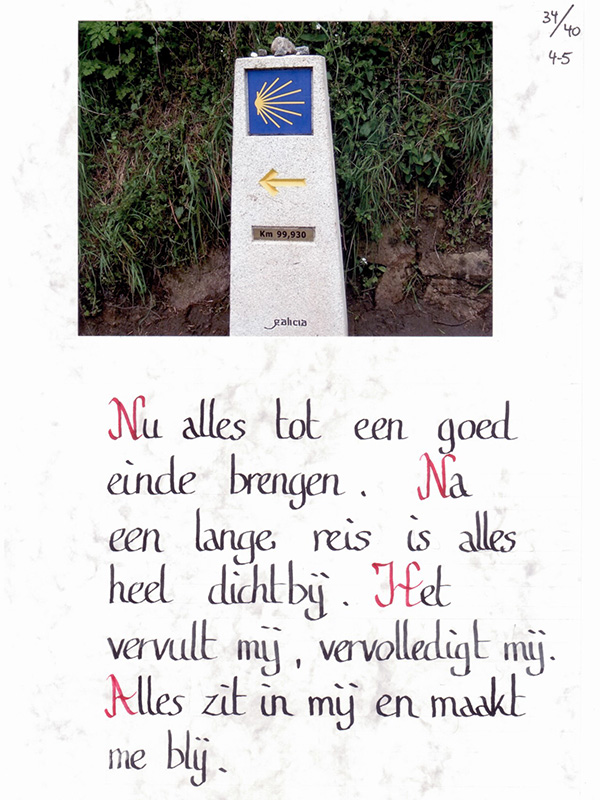 34/40
4-5
Km 99,930
galicia
Nu alles tot een goed
einde brengen. Na
een lange reis is alles
heel dichtbij. Het
vervult mij, vervolledigt mij.
Alles zit in mij en maakt
me blij.